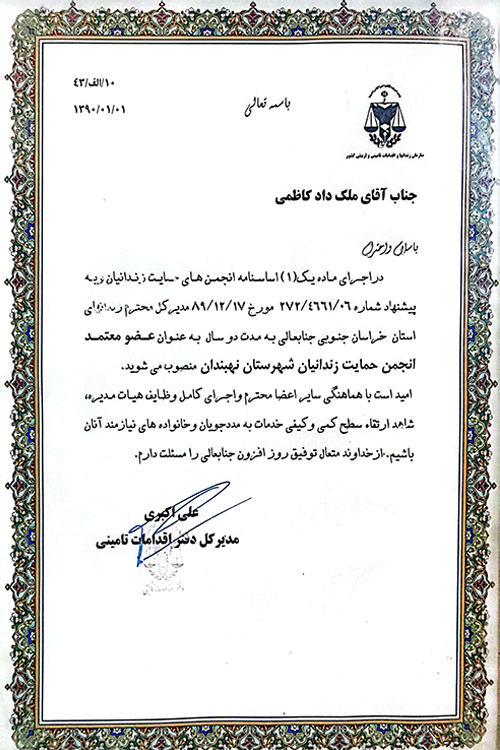 ۱۰/الف/۴۳
۱۳۹۰/۰۱/۰۱
باسمه تعالی
سازمان زندانها و اقدامات تامینی و تربیتی کشور
جناب آقای ملک داد کاظمی
باسلام واحترام
دراجرای ماده یک(۱) اساسنامه انجمن های حمایت زندانیان وبه
پیشنهاد شماره ۲۷۲/۴۶۶۱/۰۶ مورخ ۸۹/۱۲/۱۷ مدیرکل محترم زندانهای
استان خراسان جنوبی جنابعالی به مدت دو سال به عنوان عضو معتمد
انجمن حمایت زندانیان شهرستان نهبندان منصوب می شوید.
امید است با هماهنگی سایر اعضا محترم واجرای کامل وظایف هیات مدیره،
شاهد ارتقاء سطح کمی وکیفی خدمات به مددجویان وخانواده های نیازمند آنان
باشیم. ازخداوند متعال توفیق روز افزون جنابعالی را مسئلت دارم.
علی اکبری
مدیرکل دفتر اقدامات تامینی